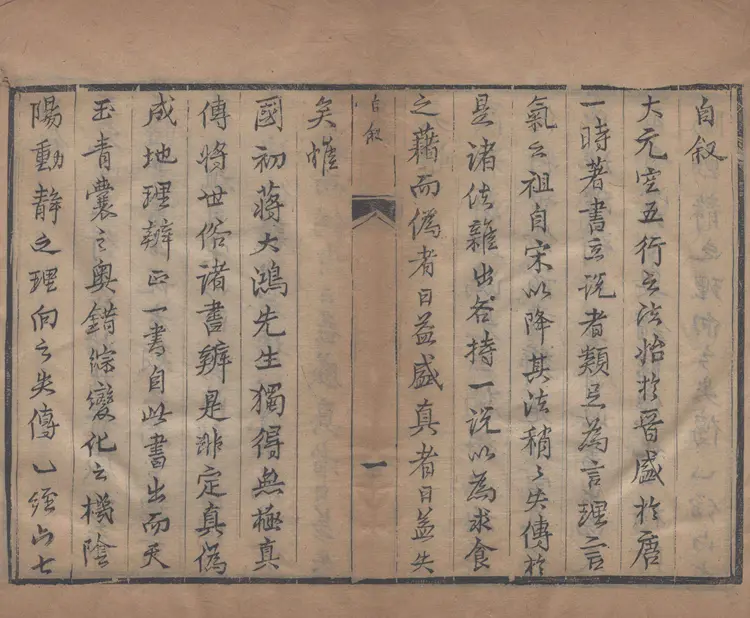 自叙
大元空五行之法始於晉盛於唐
一時著書立說者類足為言理言
氣之祖自宋以降其法稍〻失傳於
是諸法雜出各持一說以為求食
之藉而偽者日益盛真者日益失
自叙
一
矣惟
國初蔣大鴻先生獨得無極真
傳將世俗諸書辨是非定真偽
成地理辨正一書自此書出而天
玉青囊之奧錯綜變化之機陰
陽動靜之理向之失傳